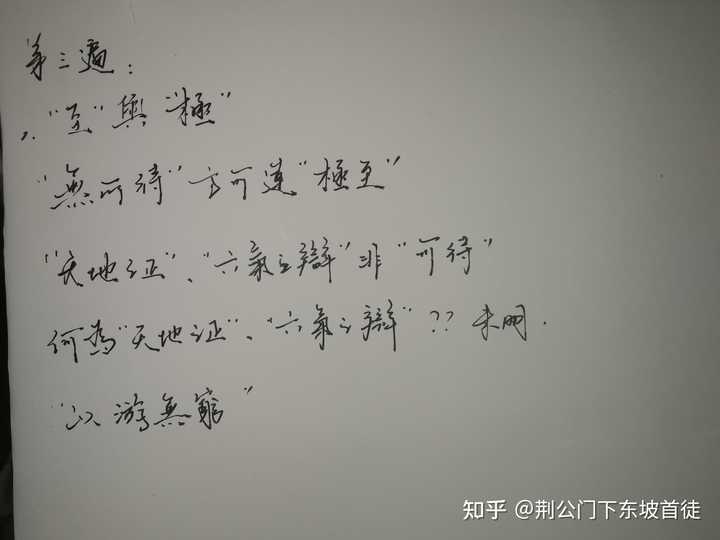 第三遍：
1. "至"與"極"
"無所待"方可達"極至"
"天地证"、"六氣之辯"非"可待"
何為"天地证"、"六氣之辯"？？未明.
"以游無窮"
知乎 @荆公门下东坡首徒